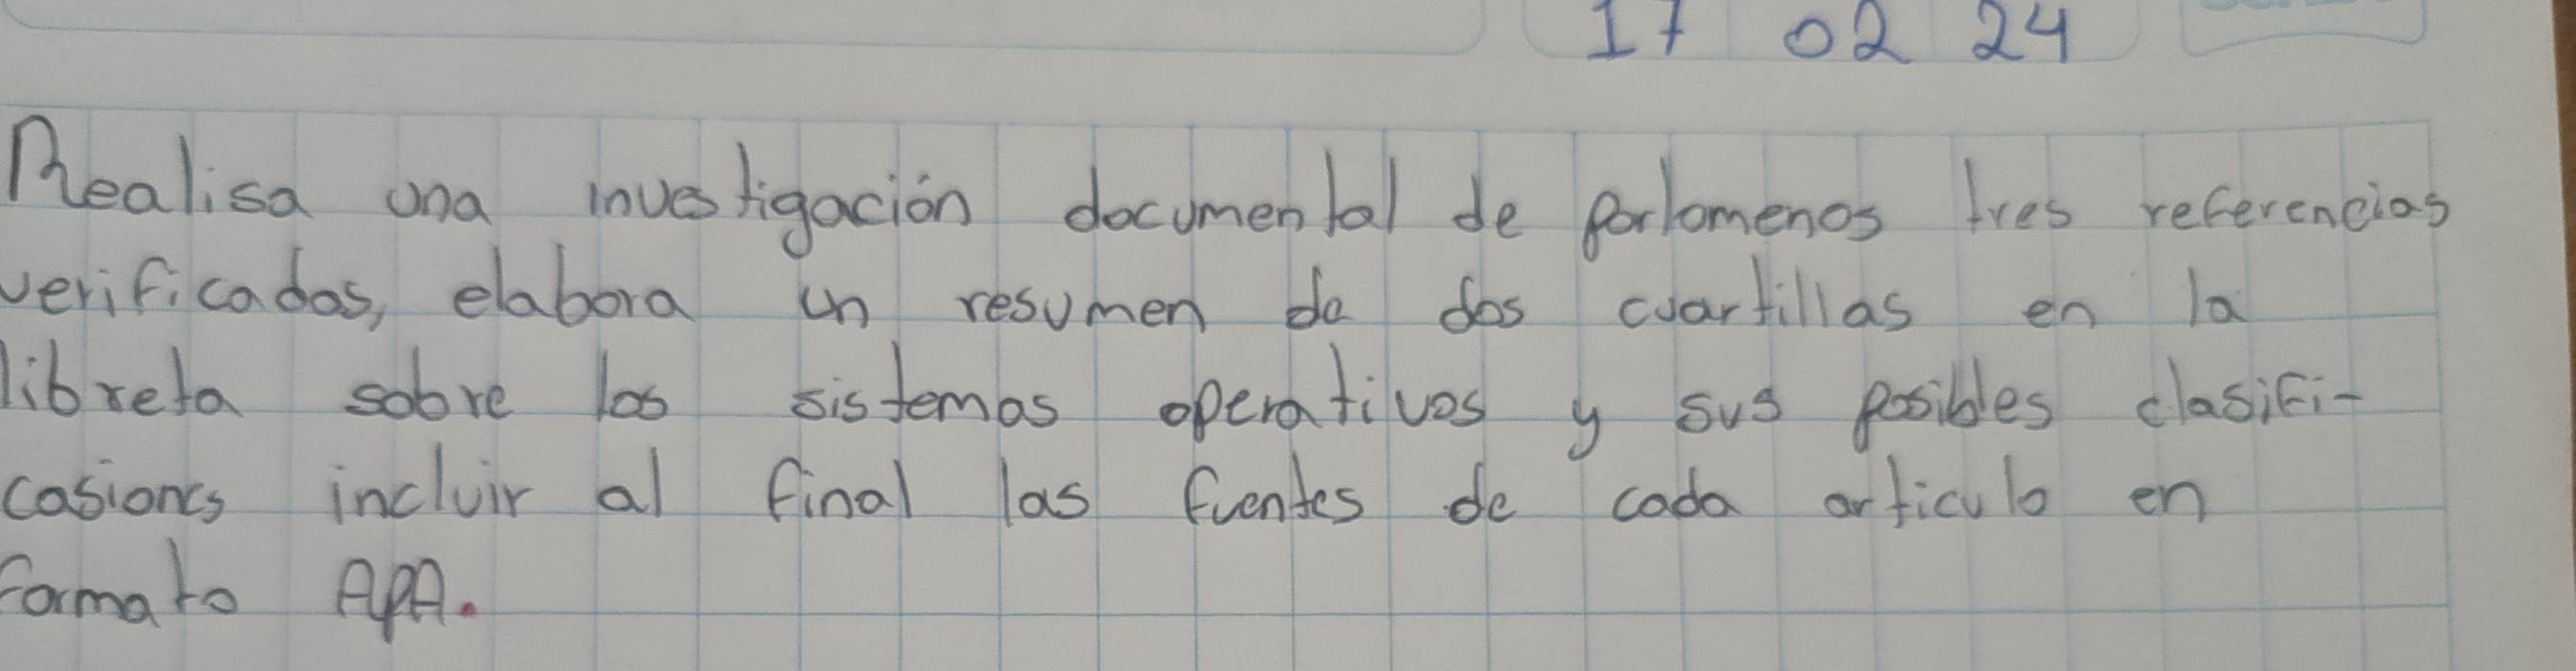 17 02 24
Realisa una investigación documental de porlomenos tres referencias
verificadas, elabora un resumen de dos cuartillas en la
libreta sobre los sistemas operativos y sus posibles clasifi-
casiones incluir al final las fuentes de cada articulo en
formato APA.